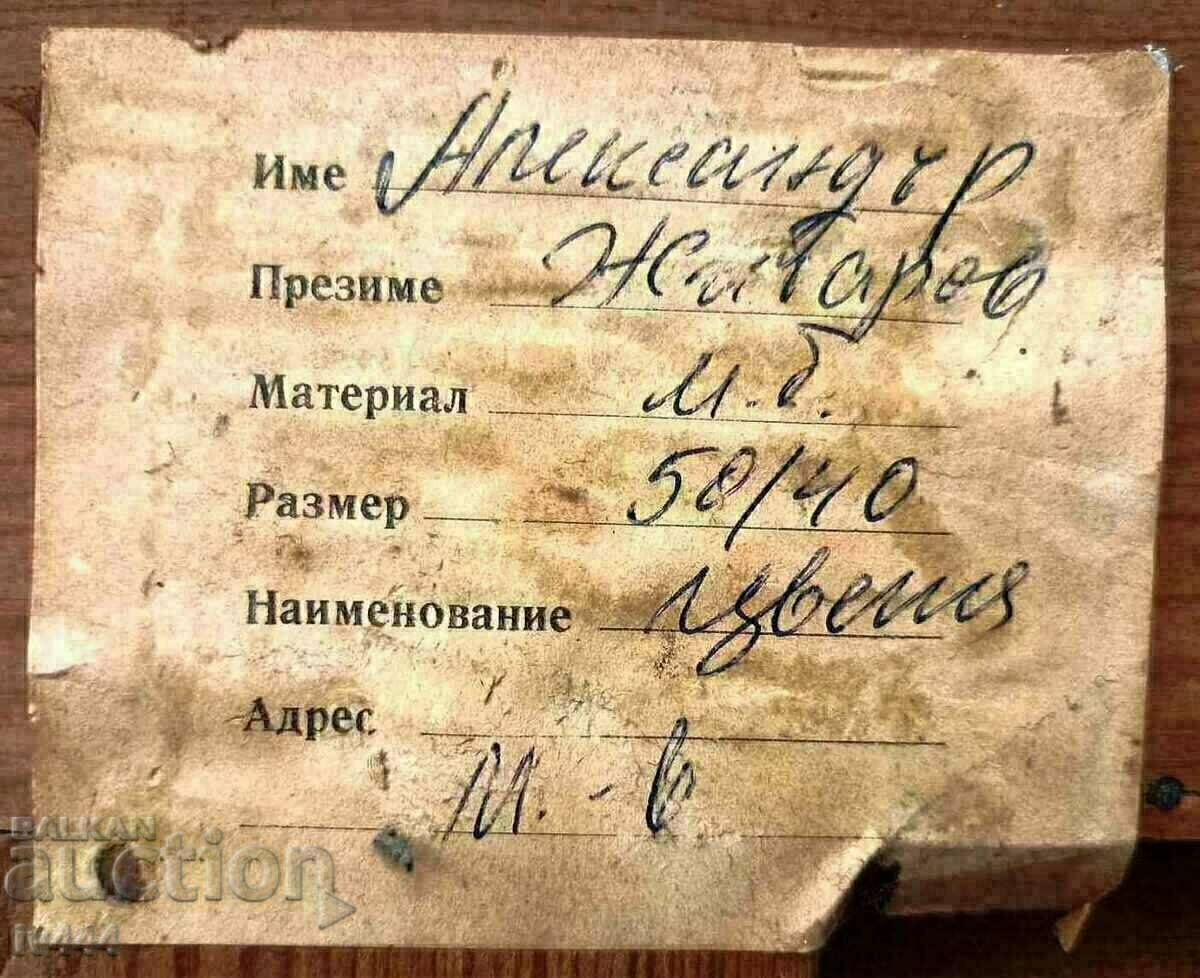 Име Александър
Презиме Жабаров
Материал м.б.
Размер 50/40
Наименование Цветя
Адрес
М.-в
BALKAN
auction
iv444